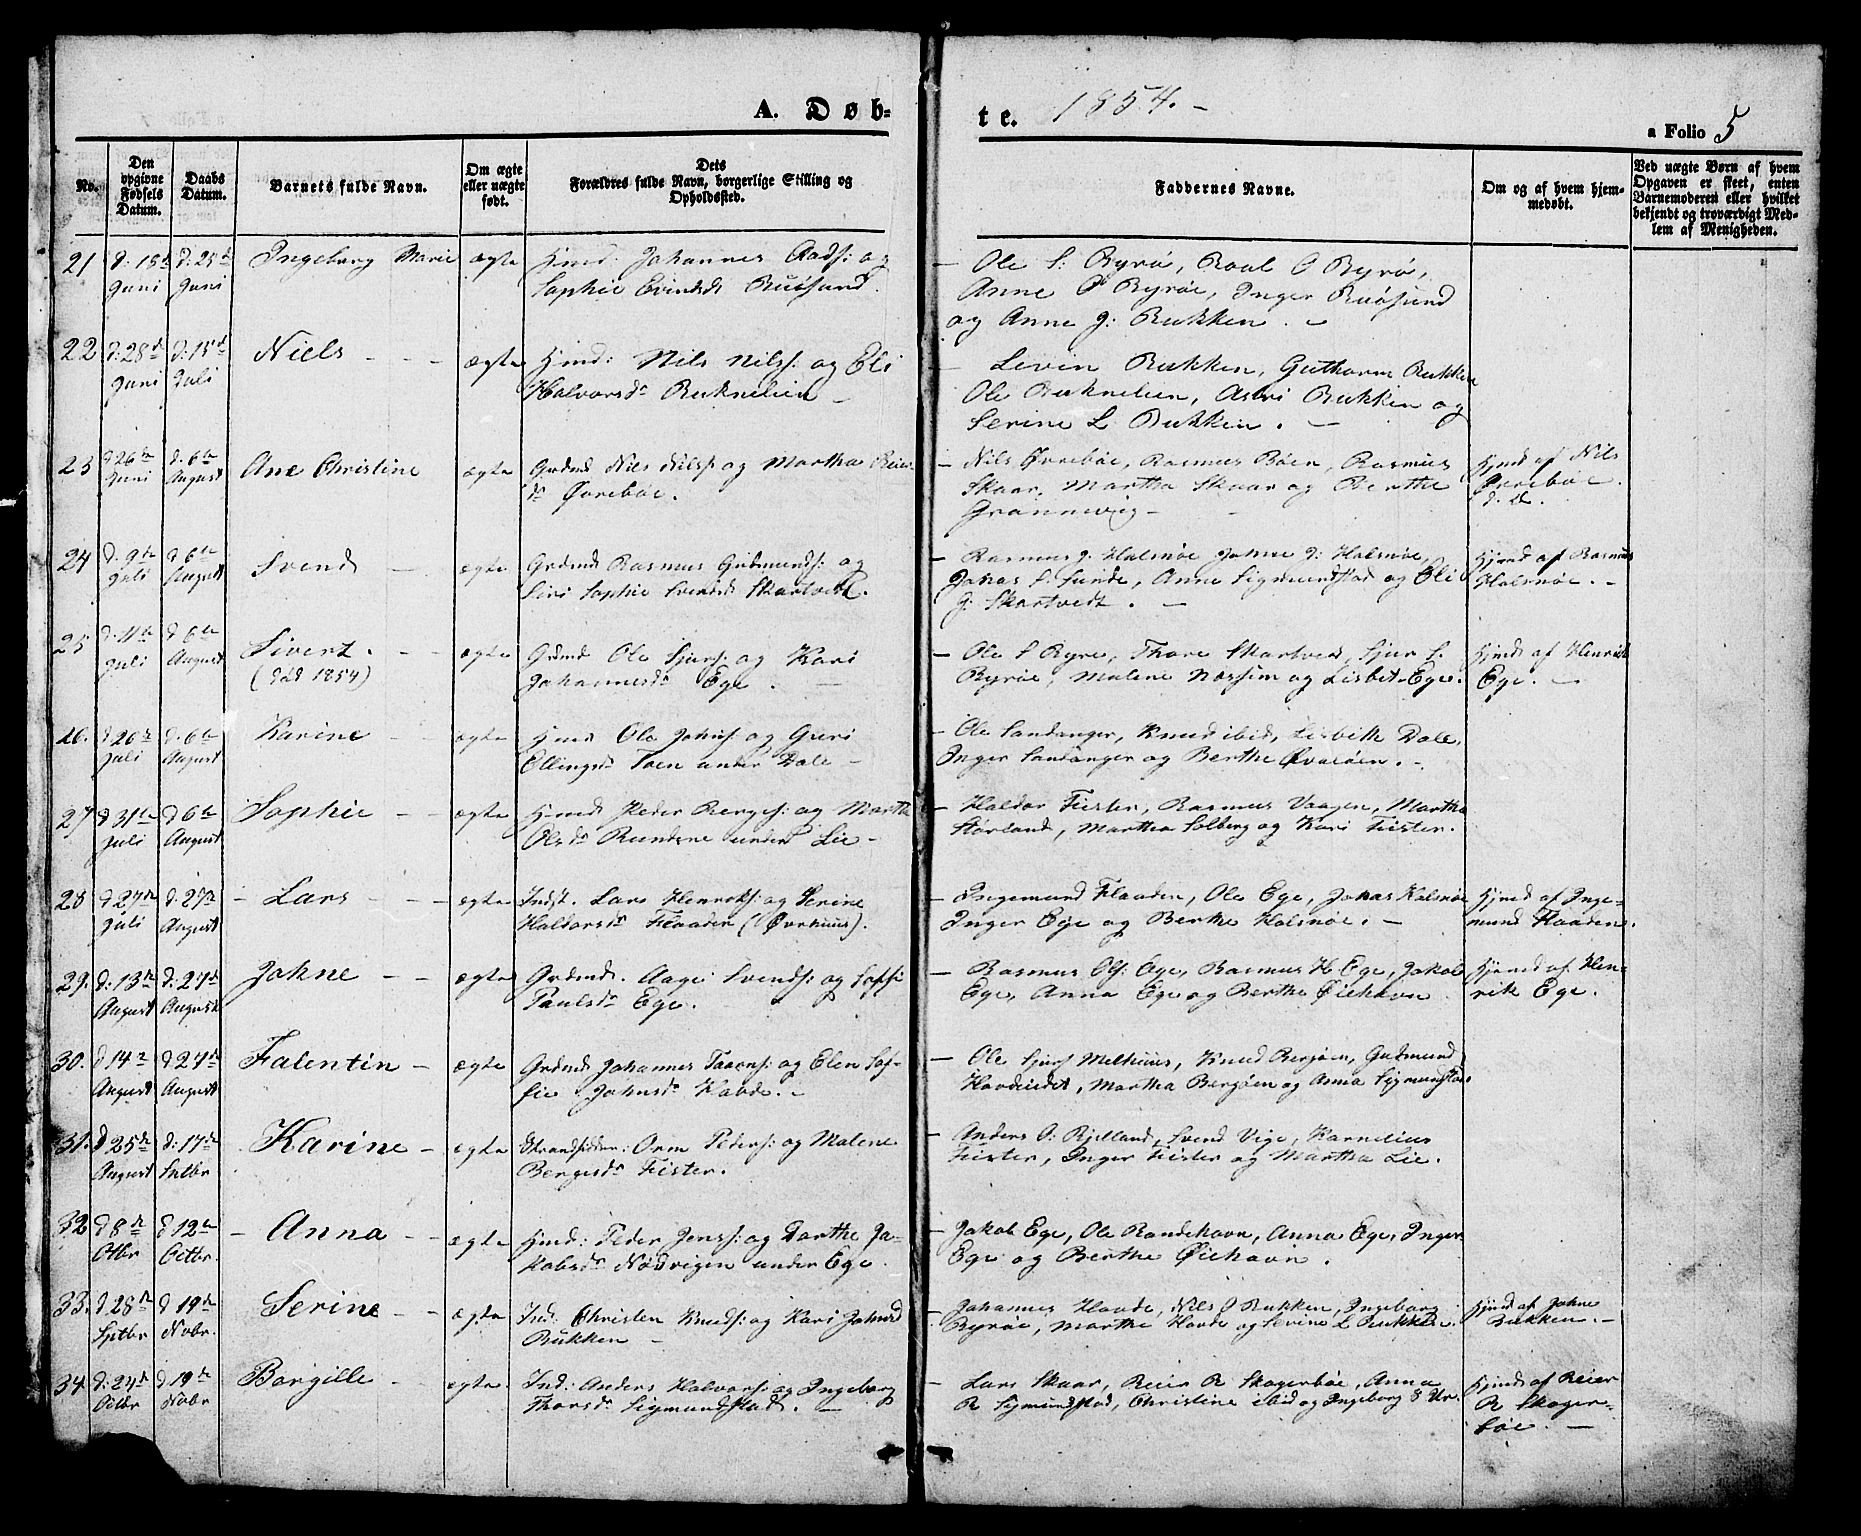 A. Døb-
te. 1854. -
a Folio 5
No.
Den opgivne Fødsels Datum.
Daabs Datum.
Barnets fulde Navn.
Om ægte eller uægte født.
Dets Forældres fulde Navn, borgerlige Stilling og Opholdssted.
Faddernes Navne.
Om og af hvem hjemmedøbt.
Ved uægte Børn af hvem Opgaven er skeet, enten Barnemoderen eller hvilket bekjendt og troværdigt Medlem af Menigheden.
21 d: 18 Juni d: 25 Juni Ingeborg Marie ægte Hmd: Johannes Aads: og
Sophie Evindsd
Ole S: Byrø, Poul O Byrø,
Anne O Byrøe, Inger
og Anne J: Bukken. -
22 d: 28de Juni d: 15de Juli Niels - - - ægte Hmd: Nils Nilss: og Eli
Halvorsdr Buknelien -
- Levin Bukken, Guthorm Bukken
Ole Buknelien, Astri Bukken og
Serine L Bukken. -
23 d 26de Juni d. 6te August Ane Christine ægte Grdmd Nils Nilss: og Martha Reiers
dr Øvrebøe.
- Nils Øvrebøe, Rasmus Bøen, Rasmus
Skaar, Martha Skaar og Berthe
Hjmd af Nils
Øvrebøe.
24 d. 9de Juli d 6te August Svend - - ægte Grdmd Rasmus Gudmunds: og
Siri Sophie Svendsd Skartvedt.
- Rasmus J. Halsnøe, Johne J: Halsnøe,
Johas S. Sunde, Anne Sigmundstad og Eli
J: Skartvedt. -
Hjmd af Rasmus
Halsnøe. -
25 d. 11te Juli d 6te August Sivert. - - ægte Grdmd Ole Sjurs: og Kari
(død 1854) Johannesdr Ege. -
- Ole S Byre, Thore Skartved, Sjur S.
Byrøe, Malene Næssim og Lisbet Ege.
Hjmd af Henrik
Ege. -
26. d 20de Juli d. 6te August Karine - - ægte Hmd Ole Johns: og Gueri
Ellingsd Toen under Dale -
- Ole Sandanger, Knud ibid, Lisbeth Dale,
Inger Sandanger og Berthe
27 d 31te Juli d 6te August Sophie - - ægte Hmd Peder Berges: og Martha
Olsdr Rundene under Lie -
- Haldor Fister, Rasmus Vaagen, Martha
Størland, Martha Solberg og Kari Fister.
28 d 27de Juli d. 27de August - Lars - - - ægte Indst. Lars Henriks: og Serine
Haldorsdr Flaaden (i Øvrehuus).
- Ingemund Flaaden, Ole Ege, Johas Halsnøe
Inger Ege og Berthe Halsnøe. -
Hjmd af Inge-
mund Flaaden.
29. d: 13de August d: 27de August Johne - - ægte Grdmd. Aage Svends: og Soffi
Paulsdr Ege.
- Rasmus Ols: Ege, Rasmus H Ege, Jakob
Ege, Anna Ege og Berthe Øiehavn.
Hjmd af Hen-
rik Ege.
30. d 14de August d 27de August Falentin - ægte Grdmd Johannes Taarns: og Elen Sof-
fie Johnsdr
- Ole Sjurs Melhuus, Knud Bergøen, Gudmund
Hovdeidet, Martha Bergøen og Anna Sigmundstad
31. d 25de August d: 17de Sptbr Karine - ægte Strandsidder: Orm Peders: og Malene
Bergesdr Fister.
- Anders O: Kjelland, Svend Vige, Kornelius
Fister, Inger Fister og Martha Lie.
32 d 8de Otbr d 12te Octbr. - Anna - - ægte Hmd: Peder Jenss: og Dorthe Ja-
kobsdr Nødvigen under Ege.
- Jakob Ege, Ole Randehavn, Anna Ege, Inger
Ege og Berthe Øiehavn.
33. d 28de Sptbr d 19de Nobr. Serine - - ægte Ind. Christen Knuds: og Kari Johnsd
Bukken -
- Johannes Hovde, Nils O Bukken, Ingeborg
Byrøe, Marthe Hovde og Serine L Bukken.
Hjmd af Johne
Bukken. -
34 d: 24de Octbr d 19de Nobr Borgille - ægte. Ind: Anders Halvors: og Ingeborg
Thorsdr Sigmundstad. -
- Lars Skaar, Reier R Skogerbøe, Anna
R Sigmundstad, Christine ibid og Ingeborg
Hjmd af Reier
R Skoger-
bøe. -